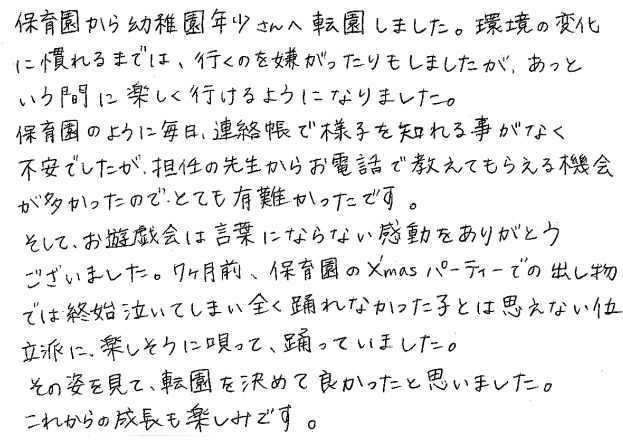 保育園から幼稚園年少さんへ転園しました。環境の変化
に慣れるまでは、行くのを嫌がったりもしましたが、あっと
いう間に楽しく行けるようになりました。
保育園のように毎日、連絡帳で様子を知れる事がなく
不安でしたが、担任の先生からお電話で教えてもらえる機会
が多かったので、とても有難かったです。
そして、お遊戯会は言葉にならない感動をありがとう
ございました。7ヶ月前、保育園のX'masパーティーでの出し物
では終始泣いてしまい全く踊れなかった子とは思えない位
立派に、楽しそうに唄って、踊っていました。
その姿を見て、転園を決めて良かったと思いました。
これからの成長も楽しみです。